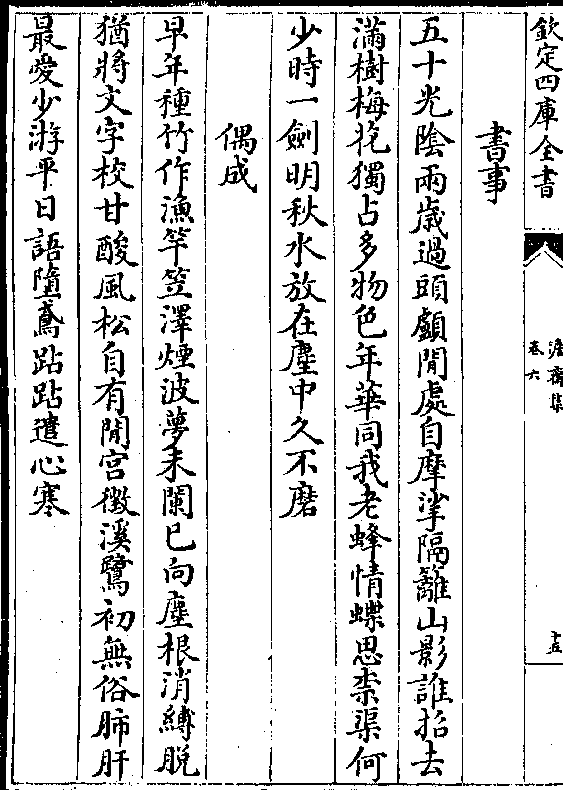 欽定四庫全書
澹齋集
卷六
十五
書事
五十光陰兩歲過頭顱閒處自摩挲隔籬山影誰招去
滿樹梅花獨占多物色年華同我老蜂情蝶思柰渠何
少時一劍明秋水放在塵中久不磨
偶成
早年種竹作漁竿笠澤煙波夢未闌已向塵根消縛脫
猶將文字校甘酸風松自有閒宮徵溪鷺初無俗肺肝
最愛少游平日語墮鳶跕跕遣心寒